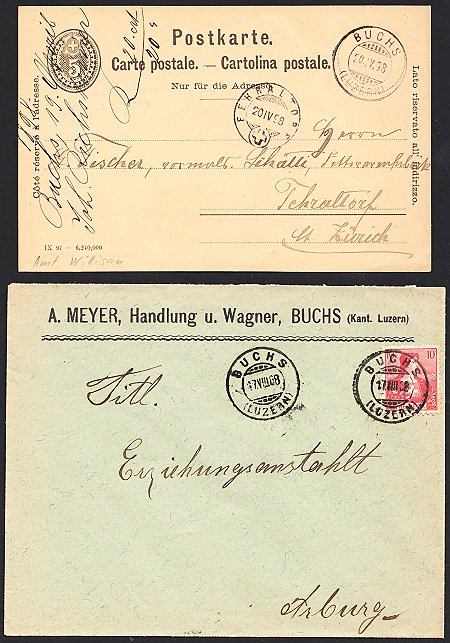 Postkarte.
Carte postale. — Cartolina postale.
Nur für die Adresse
Côté réservé à l'adresse.
Lato riservato all'indirizzo.
5
BUCHS
20.IV.98
(LUZERN)
FEHRALTORF
20 IV 98
Buchs 19.
Herrn
Fischer, vormals Schälli,
Fehraltorf
Ct. Zürich
IX 97 — 6,210,000
Amt Willisau
A. MEYER, Handlung u. Wagner, BUCHS (Kant. Luzern)
BUCHS
17.VIII.08
(LUZERN)
BUCHS
17.VIII.08
(LUZERN)
10
Titl.
Erziehungsanstahlt
Arburg